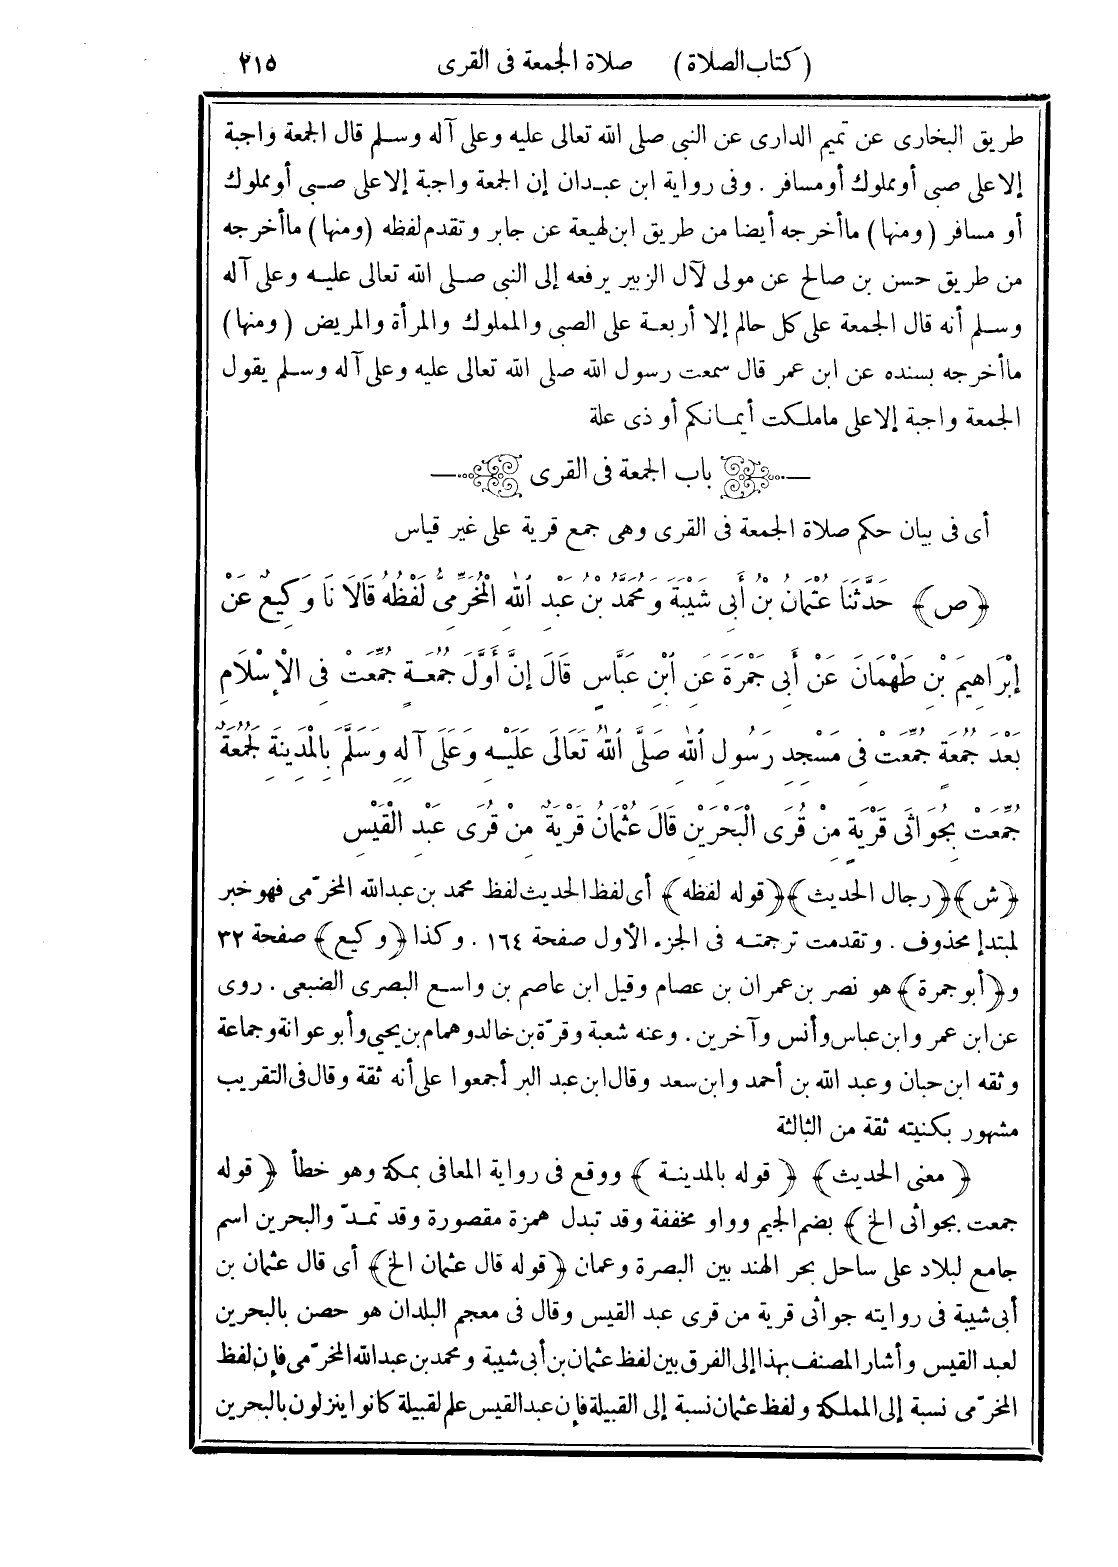 (كتاب الصلاة) صلاة الجمعة فى القرى ٢١٥
طريق البخارى عن تميم الدارى عن النبى صلى الله تعالى عليه وعلى آله وسلم قال الجمعة واجبة
إلا على صبى أو مملوك أو مسافر . وفى رواية ابن عبدان إن الجمعة واجبة إلا على صبى أو مملوك
أو مسافر (ومنها) ما أخرجه أيضا من طريق ابن لهيعة عن جابر وتقدم لفظه (ومنها) ما أخرجه
من طريق حسن بن صالح عن مولى لآل الزبير يرفعه إلى النبى صلى الله تعالى عليه وعلى آله
وسلم أنه قال الجمعة على كل حالم إلا أربعة على الصبى والمملوك والمرأة والمريض (ومنها)
ما أخرجه بسنده عن ابن عمر قال سمعت رسول الله صلى الله تعالى عليه وعلى آله وسلم يقول
الجمعة واجبة إلا على ما ملكت أيمانكم أو ذى علة
باب الجمعة فى القرى
أى فى بيان حكم صلاة الجمعة فى القرى وهى جمع قرية على غير قياس
﴿ص﴾ حَدَّثَنَا عُثْمَانُ بْنُ أَبِى شَيْبَةَ وَمُحَمَّدُ بْنُ عَبْدِ اللهِ الْمُخَرِّمِىُّ لَفْظُهُ قَالَا نَا وَكِيعٌ عَنْ
إِبْرَاهِيمَ بْنِ طَهْمَانَ عَنْ أَبِى جَمْرَةَ عَنِ ابْنِ عَبَّاسٍ قَالَ إِنَّ أَوَّلَ جُمُعَةٍ جُمِّعَتْ فِى الْإِسْلَامِ
بَعْدَ جُمُعَةٍ جُمِّعَتْ فِى مَسْجِدِ رَسُولِ اللهِ صَلَّى اللهُ تَعَالَى عَلَيْهِ وَعَلَى آلِهِ وَسَلَّمَ بِالْمَدِينَةِ لَجُمُعَةٌ
جُمِّعَتْ بِجُوَاثَى قَرْيَةٍ مِنْ قُرَى الْبَحْرَيْنِ قَالَ عُثْمَانُ قَرْيَةٌ مِنْ قُرَى عَبْدِ الْقَيْسِ
﴿ش﴾ ﴿رجال الحديث﴾ ﴿قوله لفظه﴾ أى لفظ الحديث لفظ محمد بن عبد الله المخرّمى فهو خبر
لمبتدإ محذوف . وتقدمت ترجمته فى الجزء الأول صفحة ١٦٤ . وكذا ﴿وكيع﴾ صفحة ٣٢
و﴿أبو جمرة﴾ هو نصر بن عمران بن عصام وقيل ابن عاصم بن واسع البصرى الضبعى . روى
عن ابن عمر وابن عباس وأنس وآخرين . وعنه شعبة وقرّة بن خالد وهمام بن يحيى وأبو عوانة وجماعة
وثقه ابن حبان وعبد الله بن أحمد وابن سعد وقال ابن عبد البر أجمعوا على أنه ثقة وقال فى التقريب
مشهور بكنيته ثقة من الثالثة
﴿معنى الحديث﴾ ﴿قوله بالمدينة﴾ ووقع فى رواية المعافى بمكة وهو خطأ ﴿قوله
جمعت بجواثى الخ﴾ بضم الجيم وواو مخففة وقد تبدل همزة مقصورة وقد تمدّ والبحرين اسم
جامع لبلاد على ساحل بحر الهند بين البصرة وعمان ﴿قوله قال عثمان الخ﴾ أى قال عثمان بن
أبى شيبة فى روايته جواثى قرية من قرى عبد القيس وقال فى معجم البلدان هو حصن بالبحرين
لعبد القيس وأشار المصنف بهذا إلى الفرق بين لفظ عثمان بن أبى شيبة ومحمد بن عبد الله المخرّمى فإن لفظ
المخرّمى نسبة إلى المملكة ولفظ عثمان نسبة إلى القبيلة فإن عبد القيس علم لقبيلة كانوا ينزلون بالبحرين